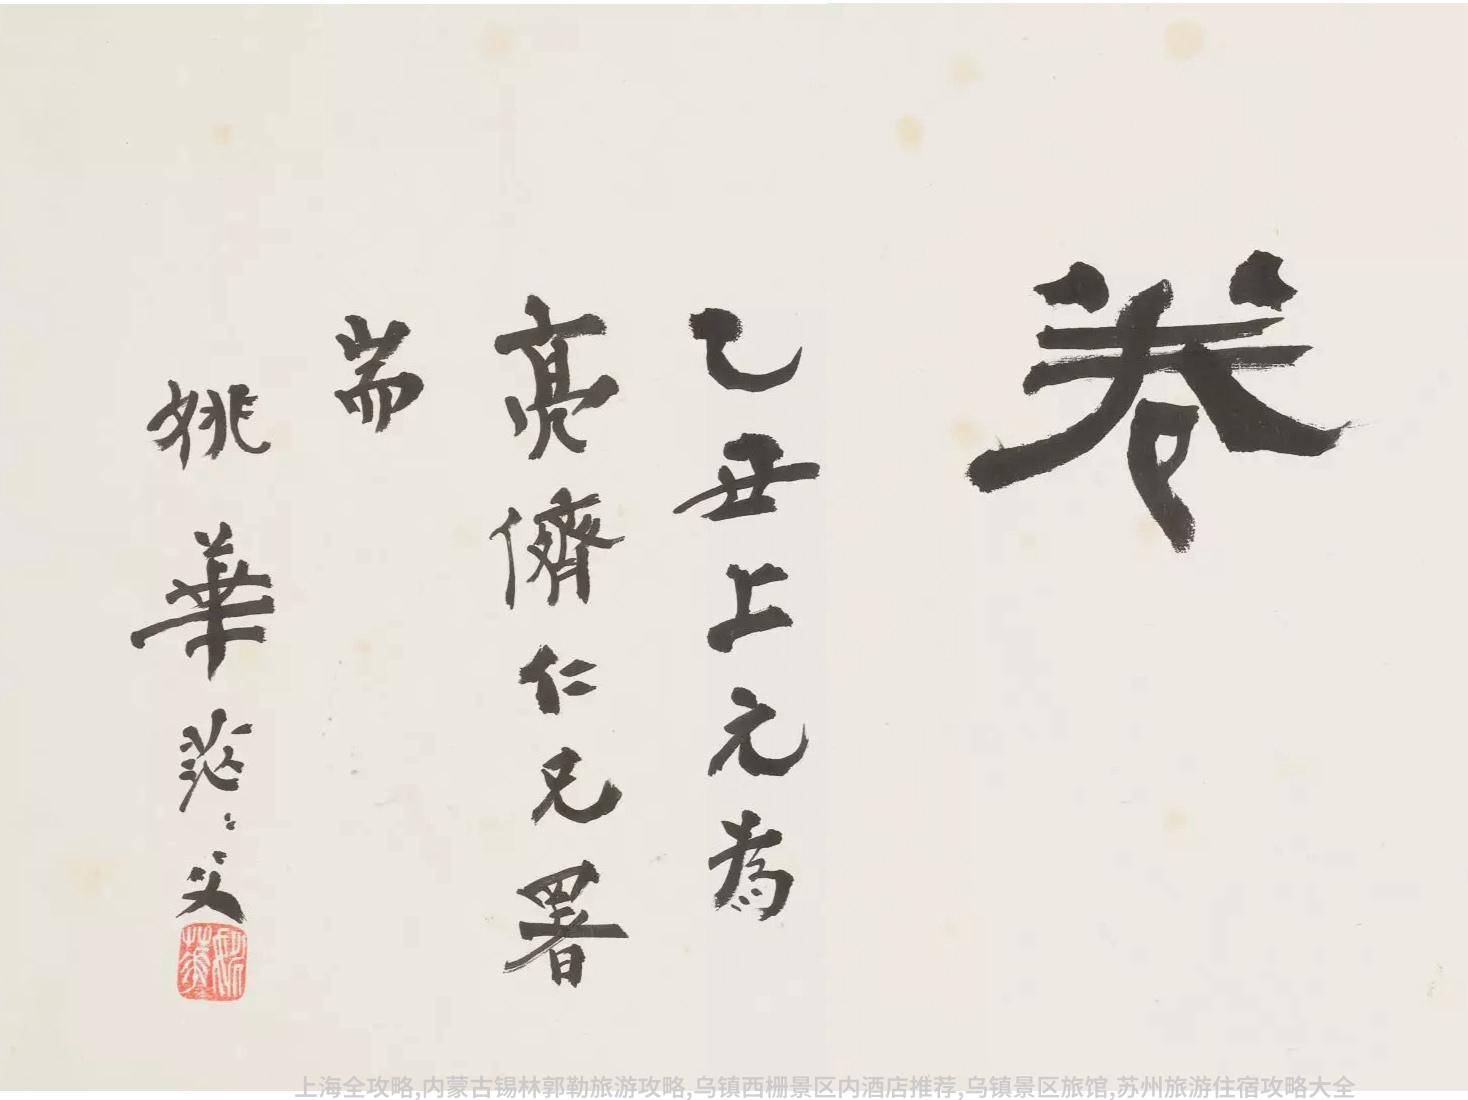 卷
乙丑上元為
亮儕仁兄署
耑
姚華茫茫父
姚華
上海全攻略,内蒙古锡林郭勒旅游攻略,乌镇西栅景区内酒店推荐,乌镇景区旅馆,苏州旅游住宿攻略大全